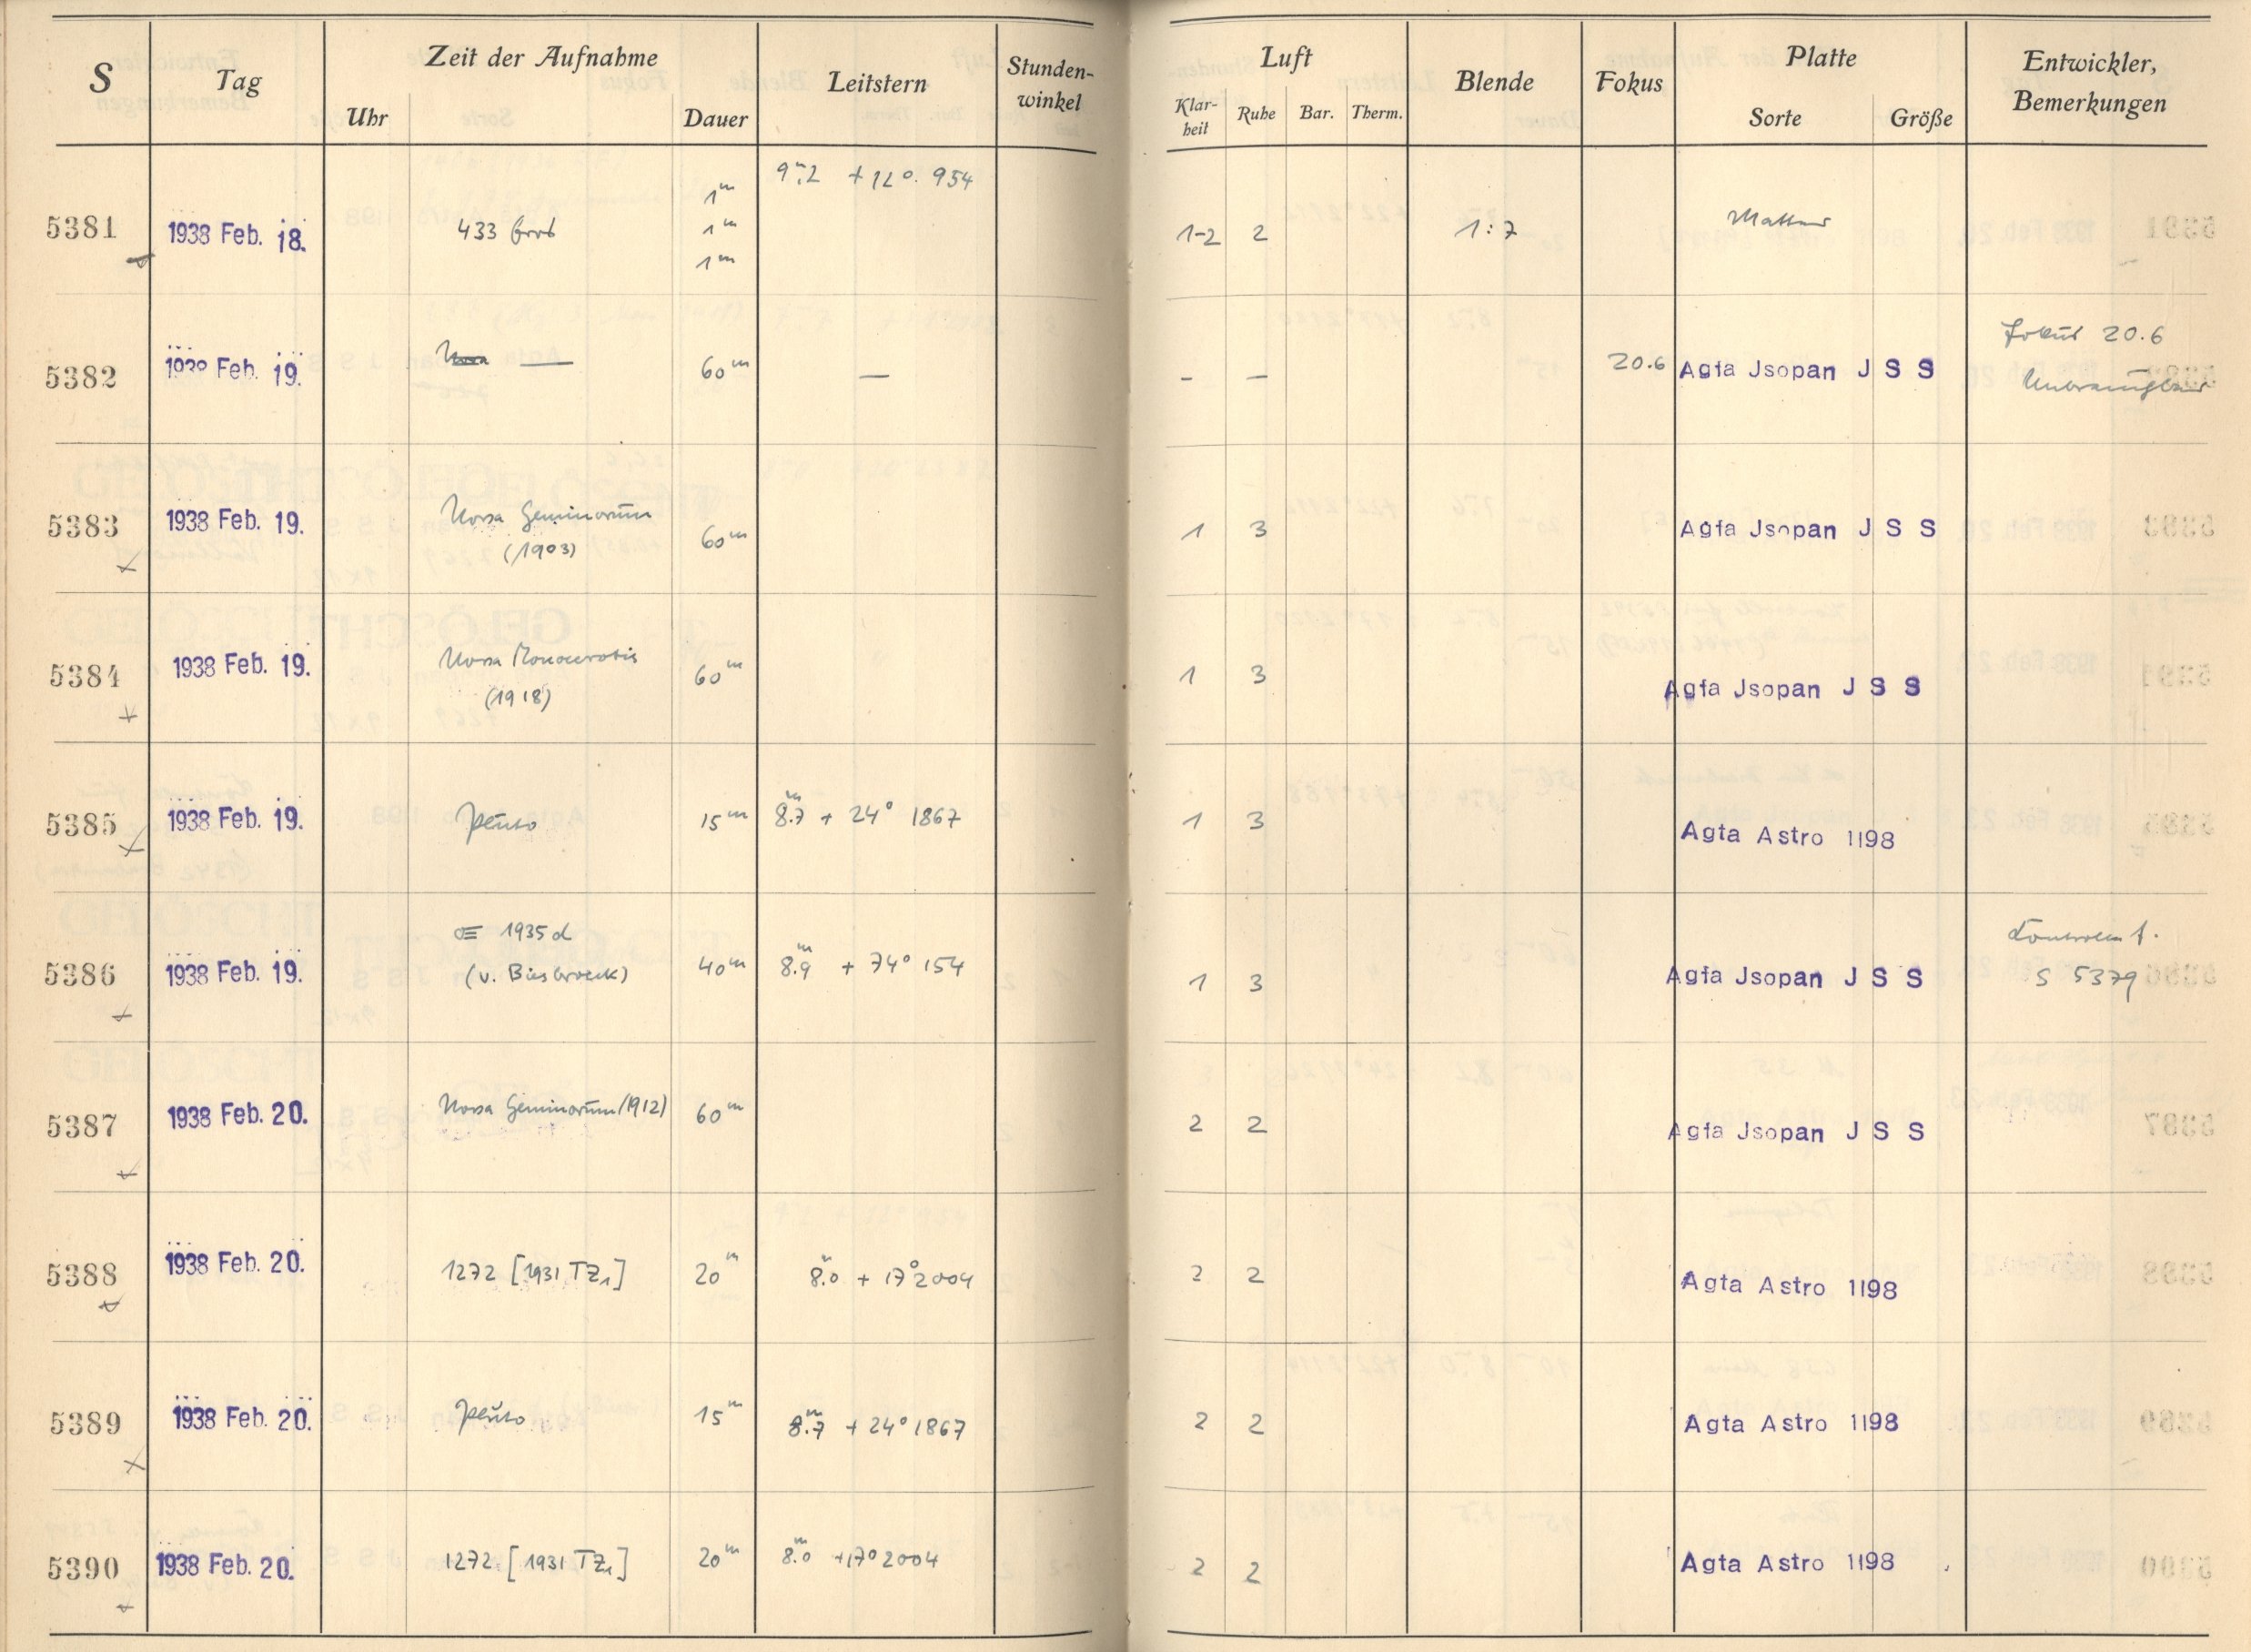 S Tag Zeit der Aufnahme Leitstern Stunden-winkel Luft Blende Fokus Platte Entwickler, Bemerkungen
Uhr Dauer Klar-heit Ruhe Bar. Therm. Sorte Größe
9ᵐ.2 +12° 954
1ᵐ
5381 1938 Feb. 18. 433 Eros 1ᵐ 1-2 2 1:7
1ᵐ
Fokus 20.6
5382 1938 Feb. 19. — 60ᵐ — - — 20.6 Agfa Jsopan J S S Unbrauchbar
5383 1938 Feb. 19. Nova Geminorum 60ᵐ 1 3 Agfa Jsopan J S S
(1903)
5384 1938 Feb. 19. Nova Monocerotis 60ᵐ 1 3 Agfa Jsopan J S S
(1918)
5385 1938 Feb. 19. Pluto 15ᵐ 8ᵐ.7 + 24° 1867 1 3 Agfa Astro 1198
1935 d
5386 1938 Feb. 19. (v. Biesbroeck) 40ᵐ 8ᵐ.9 + 74° 154 1 3 Agfa Jsopan J S S S 5379
5387 1938 Feb. 20. Nova Geminorum (1912) 60ᵐ 2 2 Agfa Jsopan J S S
5388 1938 Feb. 20. 1272 [1931 TZ₁] 20ᵐ 8ᵐ.0 + 17° 2004 2 2 Agfa Astro 1198
5389 1938 Feb. 20. Pluto 15ᵐ 8ᵐ.7 + 24° 1867 2 2 Agfa Astro 1198
5390 1938 Feb. 20. 1272 [1931 TZ₁] 20ᵐ 8ᵐ.0 +17° 2004 2 2 Agfa Astro 1198